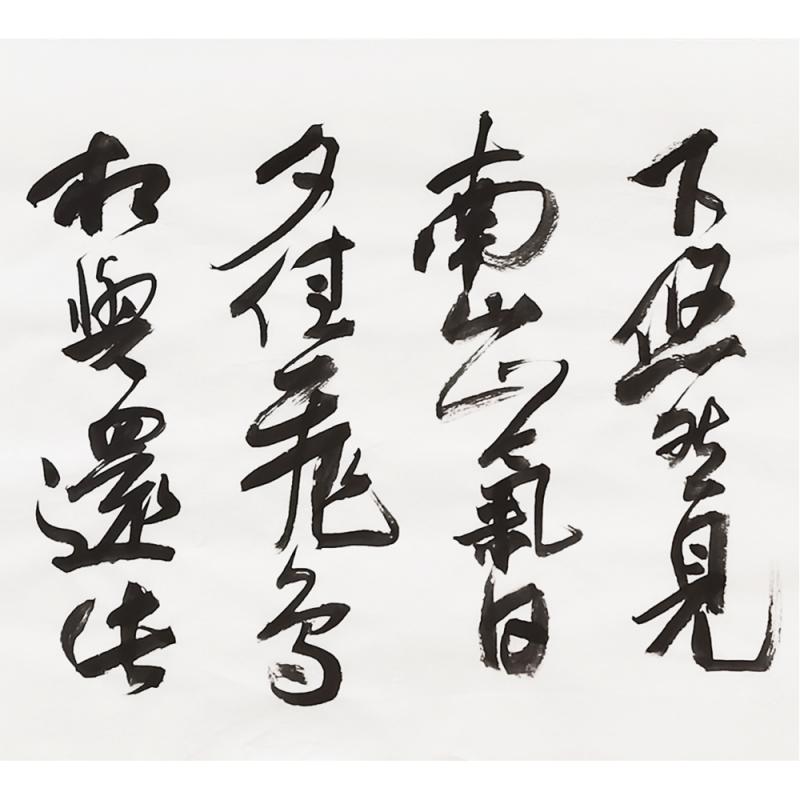 下悠然見
南山山氣日
夕佳飛鳥
相與還此